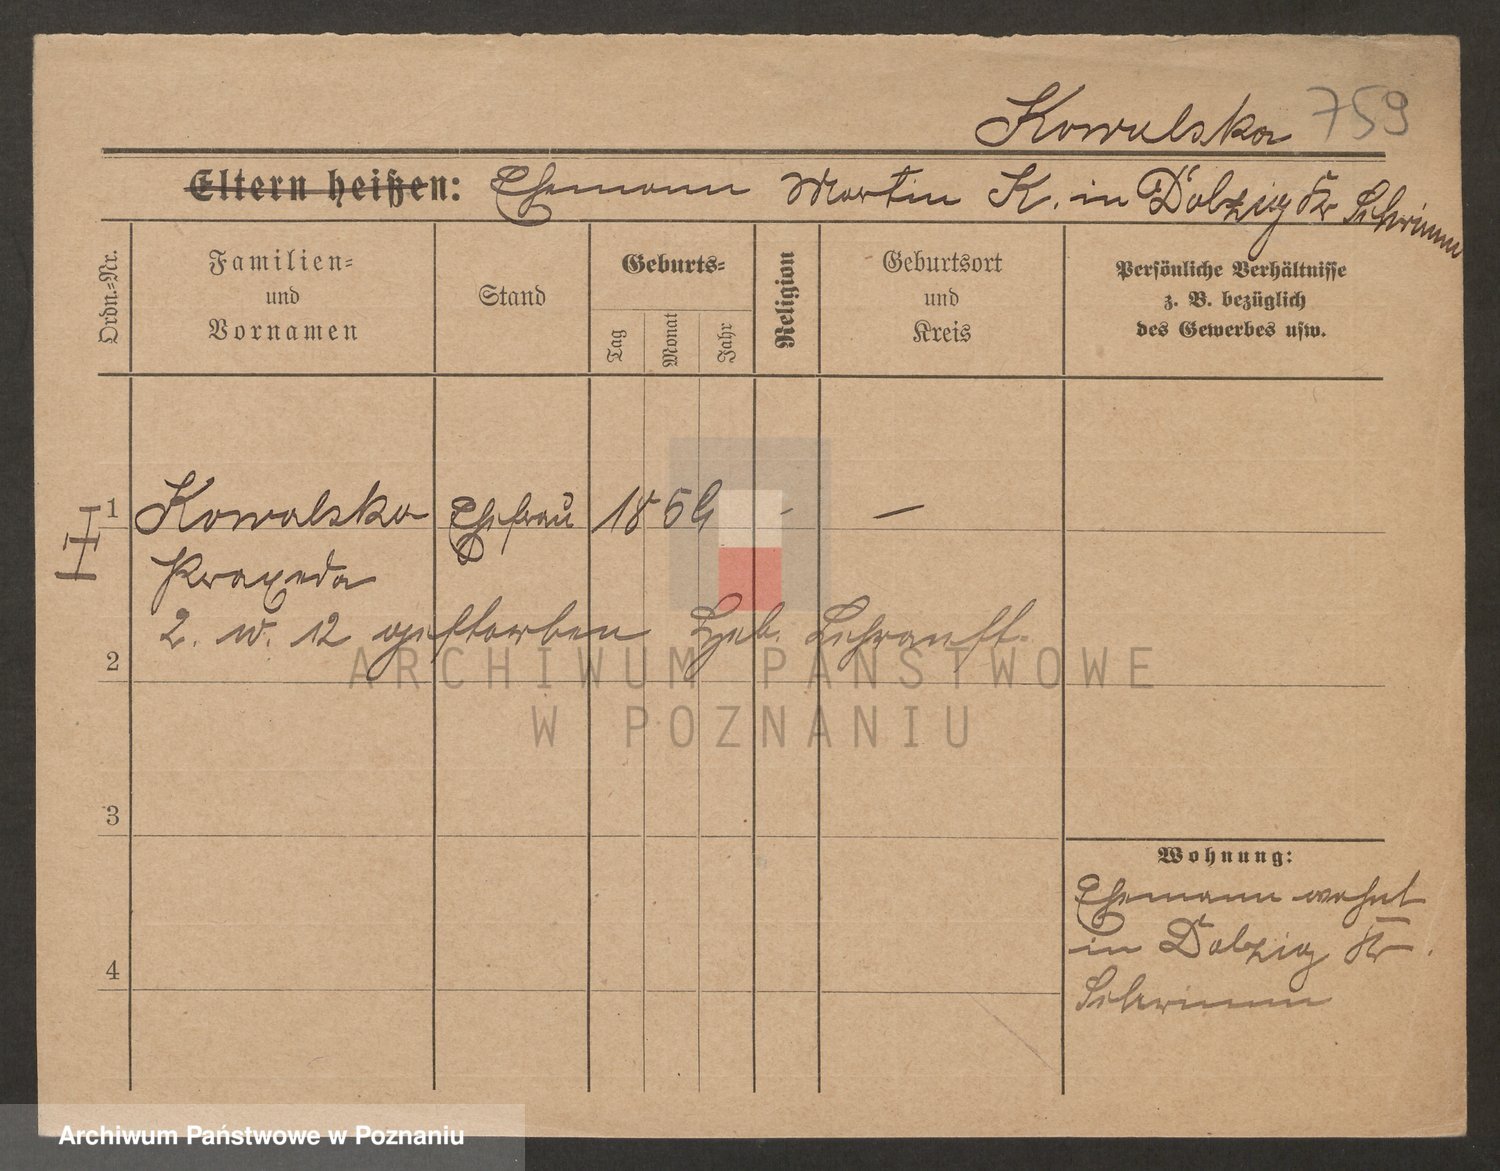 Kowalska 759
Eltern heißen: Ehemann Martin K. in Dolzig Kr Schrimm
Ordn.-Nr.
Familien-
und
Vornamen
Stand
Geburts-
Tag
Monat
Jahr
Religion
Geburtsort
und
Kreis
Persönliche Verhältnisse
z. B. bezüglich
des Gewerbes usw.
1 Kowalska Ehefrau 1859 - —
Praxeda
2. 12 gestorben Lehranst.
2
ARCHIWUM PAŃSTWOWE
W POZNANIU
3
Wohnung:
Ehemann wohnt
in Dolzig Kr.
Schrimm
4
Archiwum Państwowe w Poznaniu